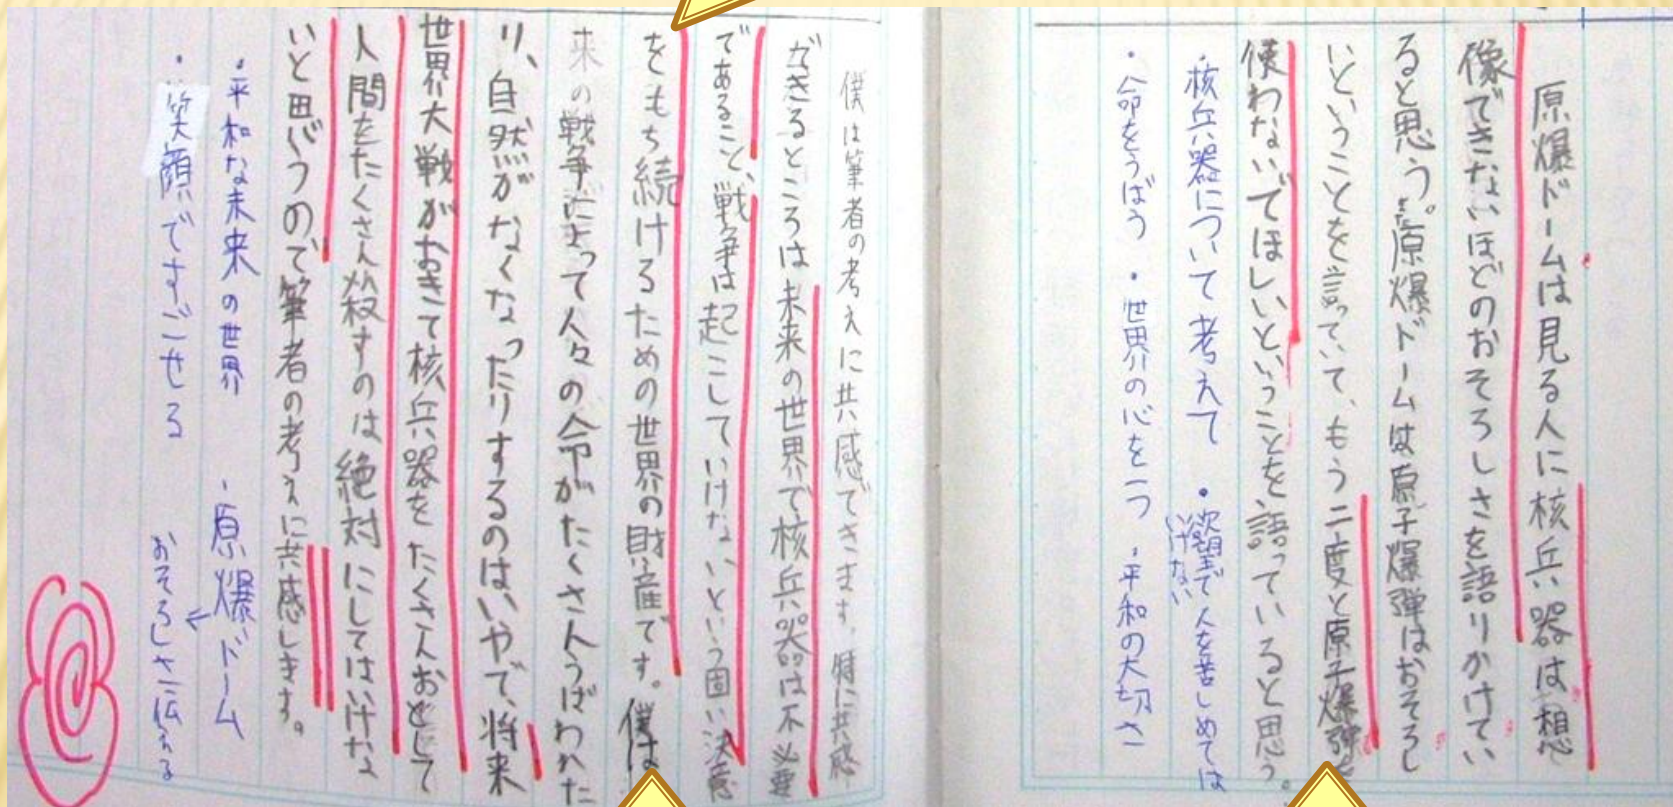 原爆ドームは見る人に核兵器は想
像できないほどのおそろしさを語りかけてい
ると思う。原爆ドームは原子爆弾はおそろし
いということを言っていて、もう二度と原子爆弾を
使わないでほしいということを語っていると思う。
・核兵器について考えて ・欲望で人を苦しめては
いけない
・命をうばう ・世界の心を一つ ・平和の大切さ
僕は筆者の考えに共感できます。特に共感
ができるところは未来の世界で核兵器は不必要
であること、戦争は起こしていけないという固い決意
をもち続けるための世界の財産です。僕は
来の戦争によって人々の命がたくさんうばわれた
り、自然がなくなったりするのはいやで、将来
世界大戦がおきて核兵器をたくさんおとして
人間をたくさん殺すのは絶対にしてはいけな
いと思うので筆者の考えに共感しきます。
・平和な未来の世界 ・原爆ドーム
・笑顔ですごせる おそろしさ伝える